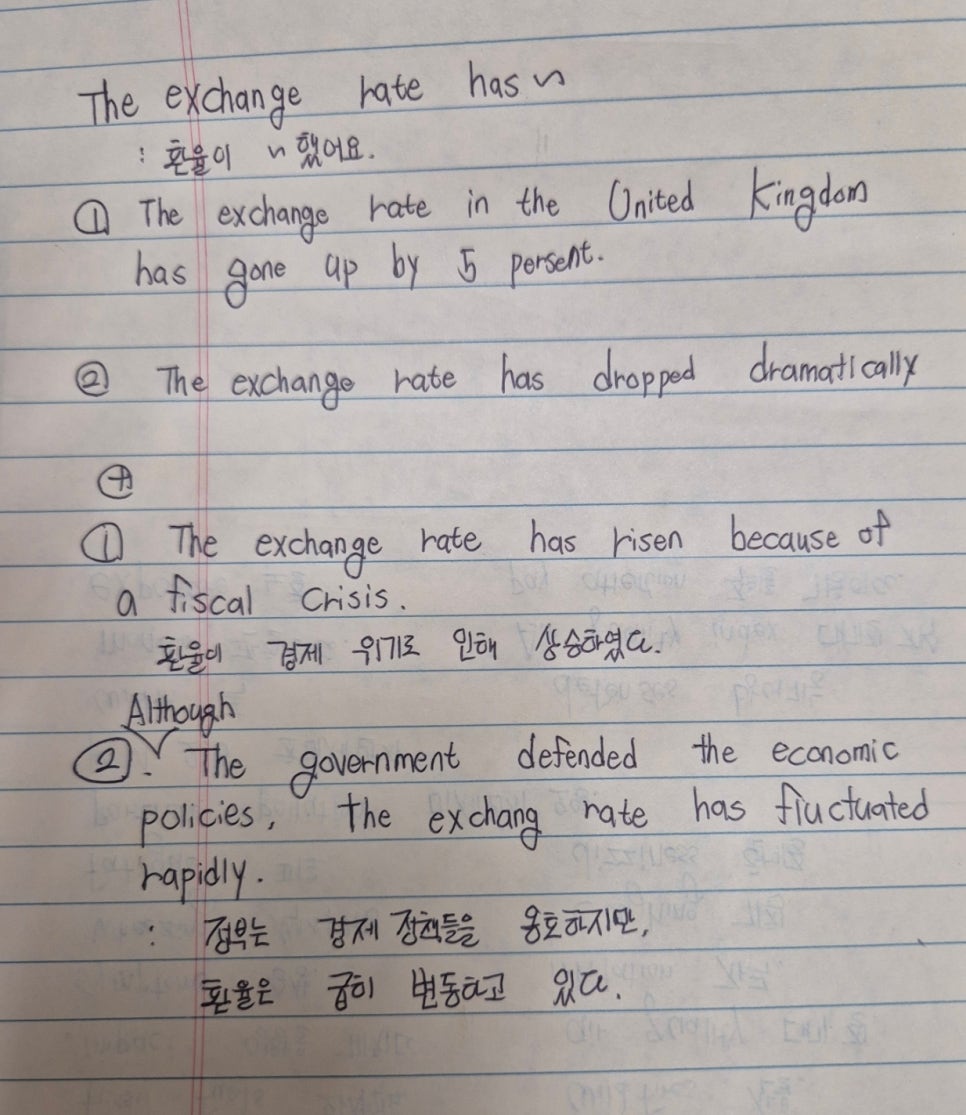 The exchange rate has ~
: 환율이 ~ 했어요.
① The exchange rate in the United Kingdom
has gone up by 5 persent.
② The exchange rate has dropped dramatically
⊕
① The exchange rate has risen because of
a fiscal crisis.
환율이 경제 위기로 인해 상승하였다.
Although
②. ∨ The government defended the economic
policies, the exchang rate has fluctuated
rapidly.
: 정부는 경제 정책들을 옹호하지만,
환율은 급히 변동하고 있다.